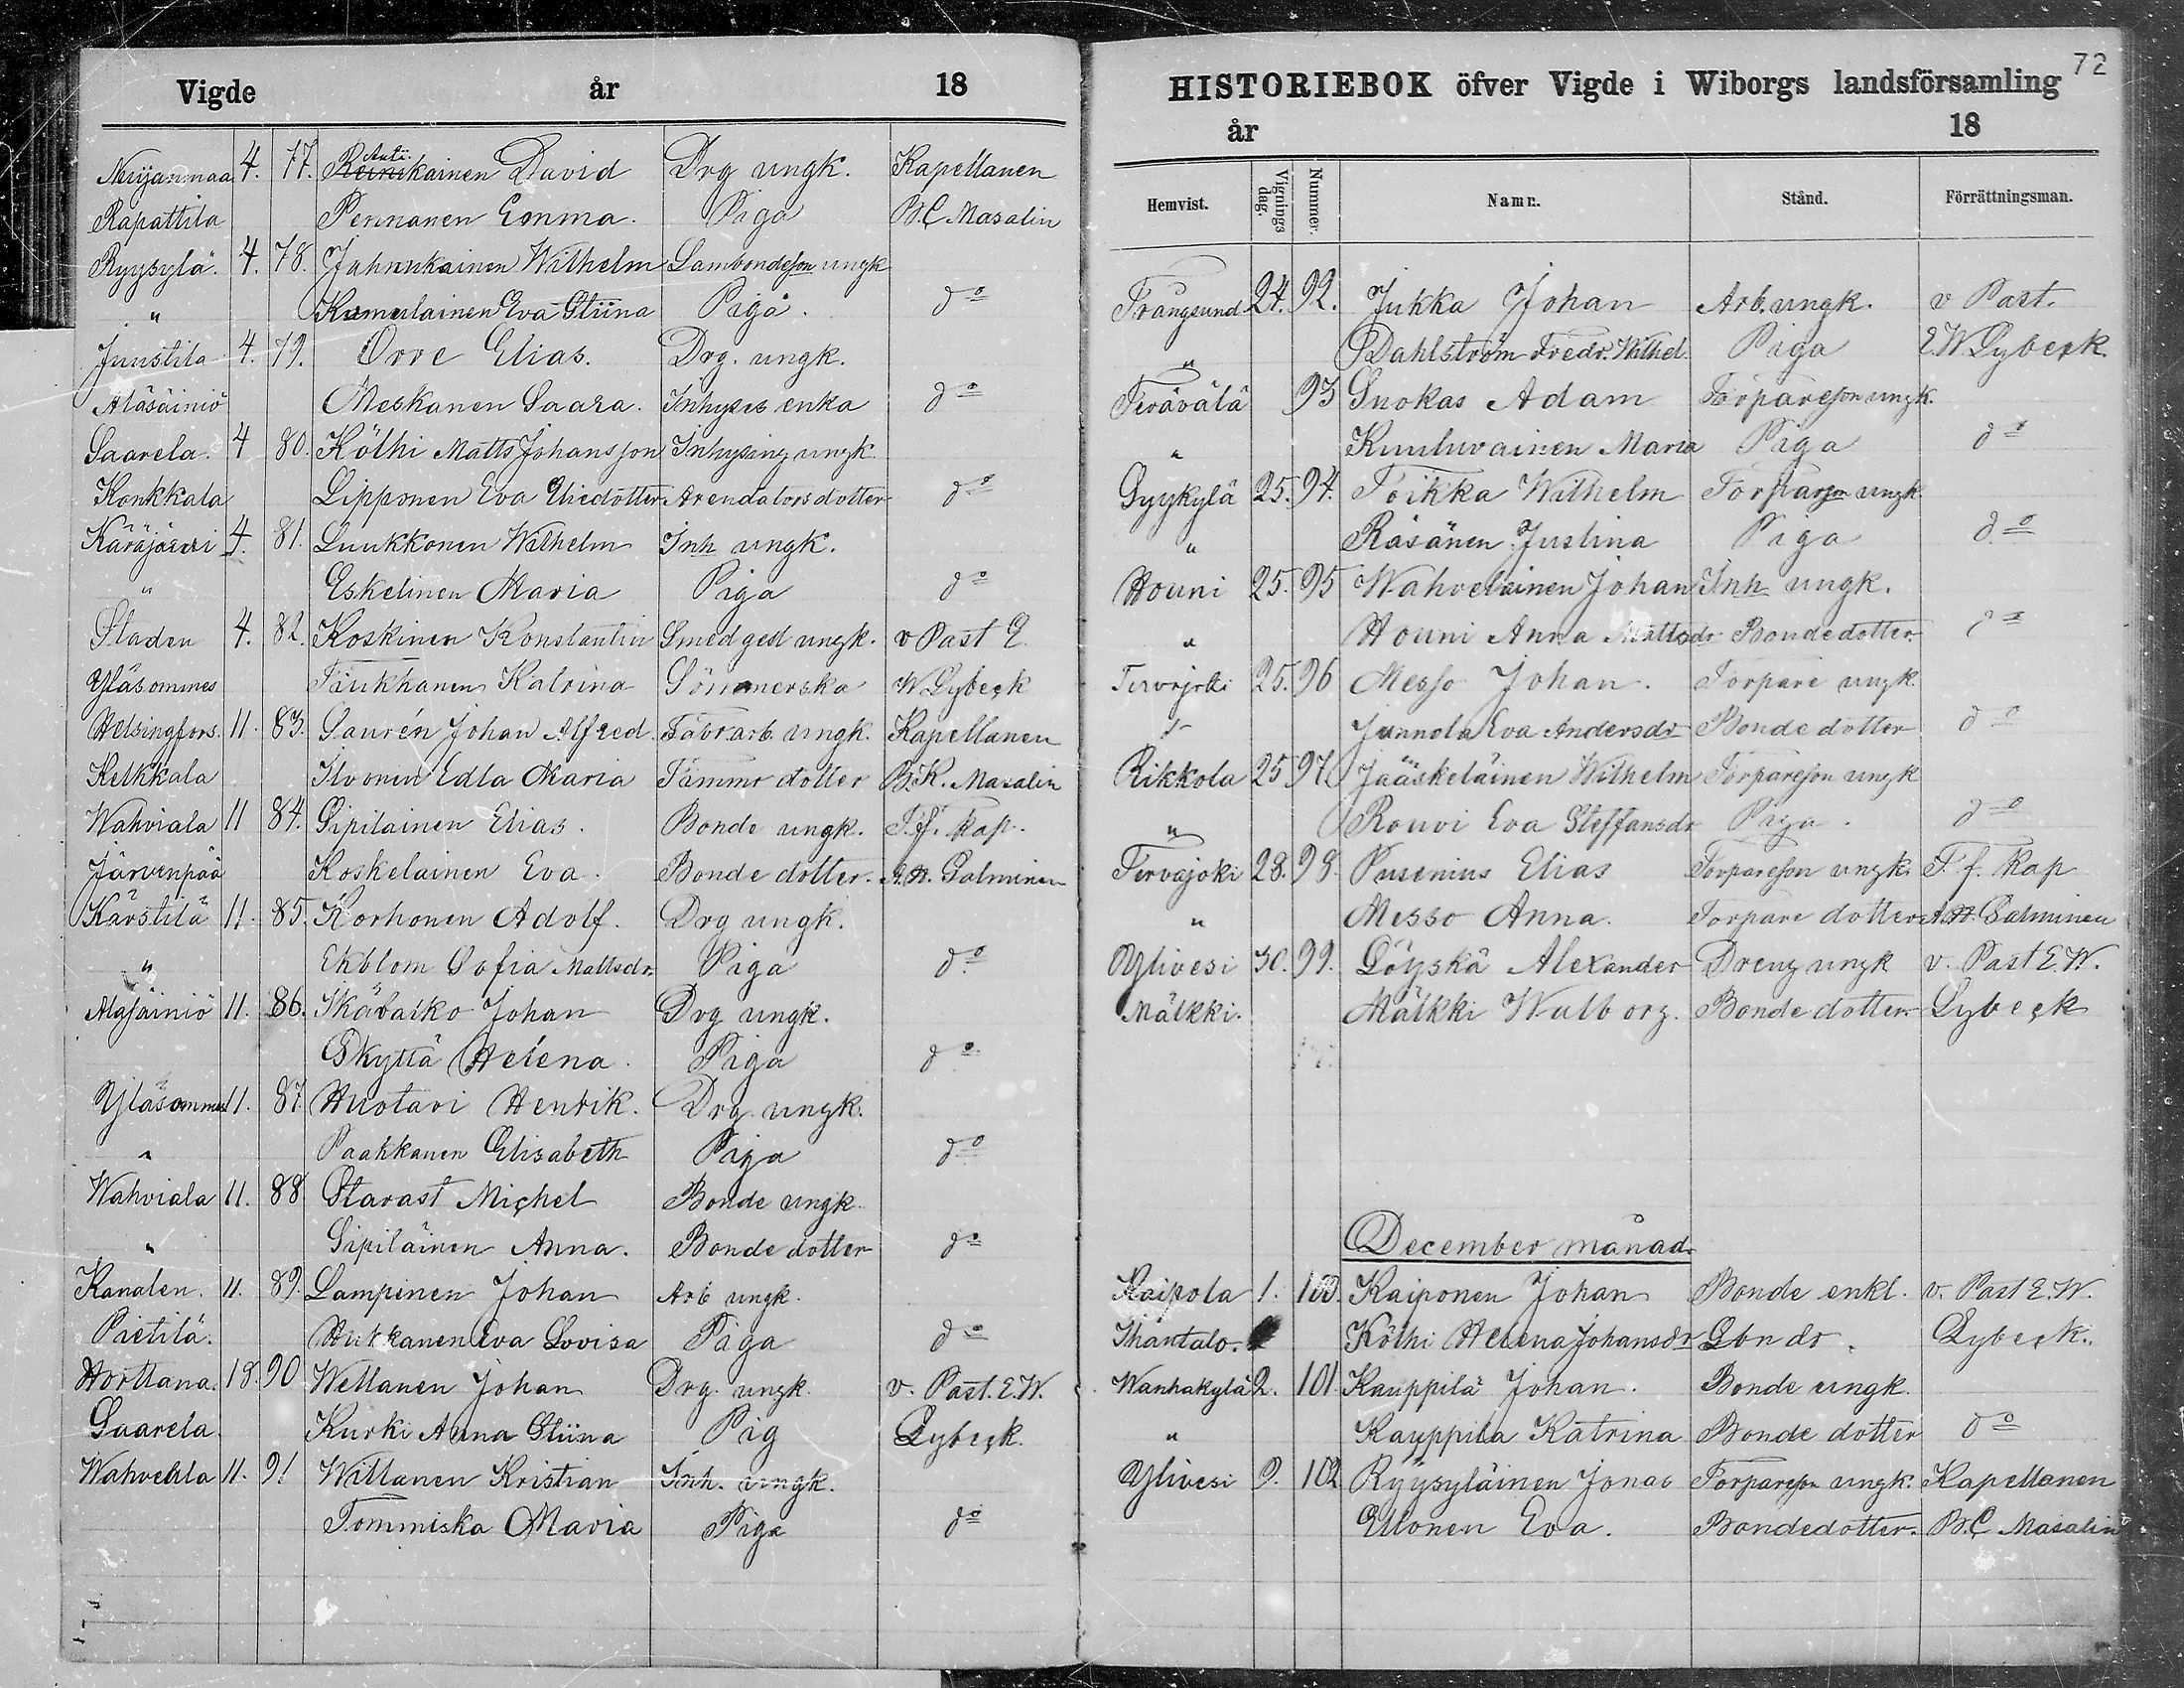 Vigde år 18
4. 77. Autikainen David Drg ungk. Kapellanen
Rapattila Pennanen Emma. Piga B.C Masalin
Ryysylä. 4. 78. Jahnukainen Wilhelm Lambondeson ungk
" Kamulainen Eva Stiina Piga. do
Juustila 4. 79. Orre Elias. Drg. ungk.
Alasäiniö Meskanen Saara. Inhyses enka do
Saarela. 4 80. Köthi Matts Johansson Inhysing ungk.
Konkkala Lipponen Eva Eliedotter Arendatorsdotter do
Käräjäsuri 4. 81. Luukkonen Wilhelm Inh ungk.
" Eskelinen Maria Piga do
Staden 4. 82. Koskinen Konstantin Smedgesl ungk. v Past E.
Yläsommes Katrina Sömmerska W Lybeck
Helsingfors. 11. 83. Laurén Johan Alfred. Fabr.arb. ungk. Kapellanen
Kelkkala Ilvonen Edla Maria Timmr dotter B.K. Masalin
Wahviala 11 84. Sipilainen Elias. Bonde ungk. T.f. kap.
Järvenpää Koskelainen Eva. Bonde dotter. A.H. Salminen
Kärstilä 11. 85. Korhonen Adolf. Drg ungk.
" Ekblom Sofia Mattsdr. Piga do
Alasäiniö 11. 86. Ikävalko Johan Drg ungk.
Skyttä Helena. Piga do
Yläsommes 11. 87. Huotari Henrik. Drg. ungk.
" Paakkanen Elisabeth Piga do
Wahviala 11. 88. Starast Michel Bonde ungk.
" Sipiläinen Anna. Bonde dotter do
Kanalen. 11. 89. Lampinen Johan Arb ungk.
Pietilä. Hukkanen Eva Lovisa Piga do
Horttana. 18. 90 Wellanen Johan Drg. ungk. v. Past. E.W.
Saarela. Kurki Anna Stiina Pig Lybeck.
11. 91 Willanen Kristian Inh. ungk.
Tommiska Maria Piga do
72
HISTORIEBOK öfver Vigde i Wiborgs landsförsamling
år 18
Hemvist. Vignings dag. Nummer. Namn. Stånd. Förrättningsman.
Trångsund 24. 92. Jukka Johan Arb. ungk. v Past.
" Dahlström Fredr. Wilhel. Piga E.W Lybeck.
93 Suokas Adam Torpareson ungk.
" Kuuluvainen Maria Piga do
Syykylä 25. 94. Toikka Wilhelm Torparson ungk
" Räsänen Justina Piga do
Houni 25. 95 Wahvelainen Johan Inh ungk.
" Houni Anna Mattsdr Bondedotter do
Tervajoki 25. 96 Messo Johan. Torpare ungk.
" Junnola Eva Andersdr Bonde dotter do
Rikkola 25 97 Jääskeläinen Wilhelm Torpareson ungk
" Rouvi Eva Steffansdr Piga. do
Tervajoki 28. 98. Pusenius Elias Torpareson ungk. T. f. kap
" Messo Anna. Torpare dotter A.H. Salminen
Ylivesi 30. 99. Löyskä Alexander Dreng ungk v. Past E.W.
Mälkki. Mälkki Walborg. Bonde dotter Lybeck
December månad
Kaipola 1. 100. Kaiponen Johan Bonde enkl. v. Past E.W.
Ihantala. Köthi Helena Johansdr Lbn dr. Lybeck.
Wanhakylä 2. 101. Kauppila Johan. Bonde ungk.
" Kauppila Katrina Bonde dotter do
Ylivesi 9. 102 Ryysyläinen Jonas Torpareson ungk. Kapellanen
Ellonen Eva. Bondedotter. B.C Masalin